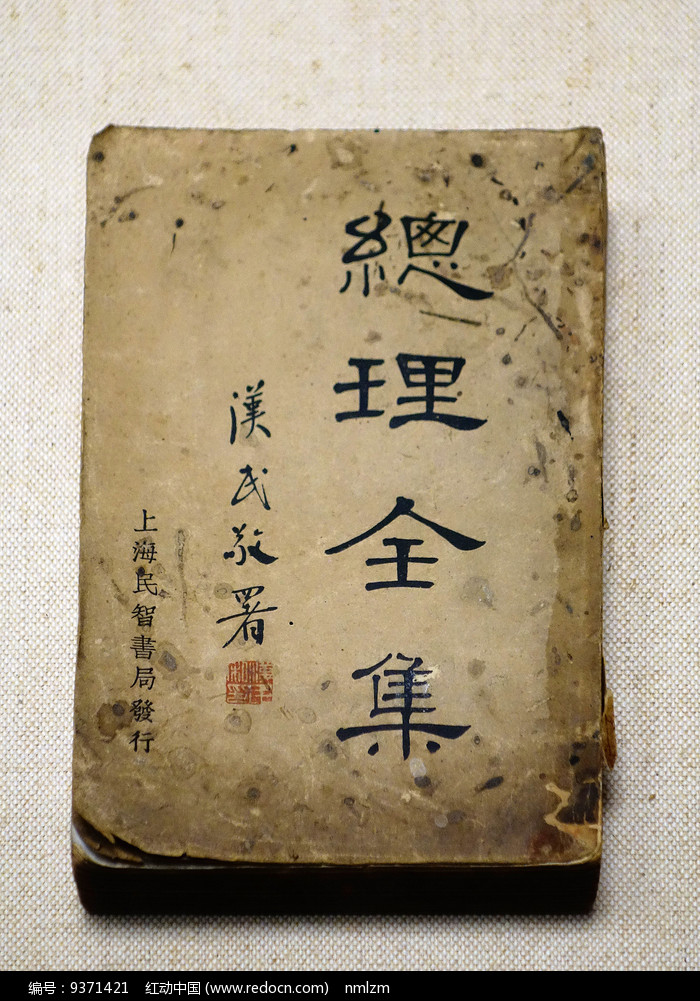 總理全集
漢民敬署
上海民智書局發行
编号：9371421 红动中国 (www.redocn.com) nmlzm